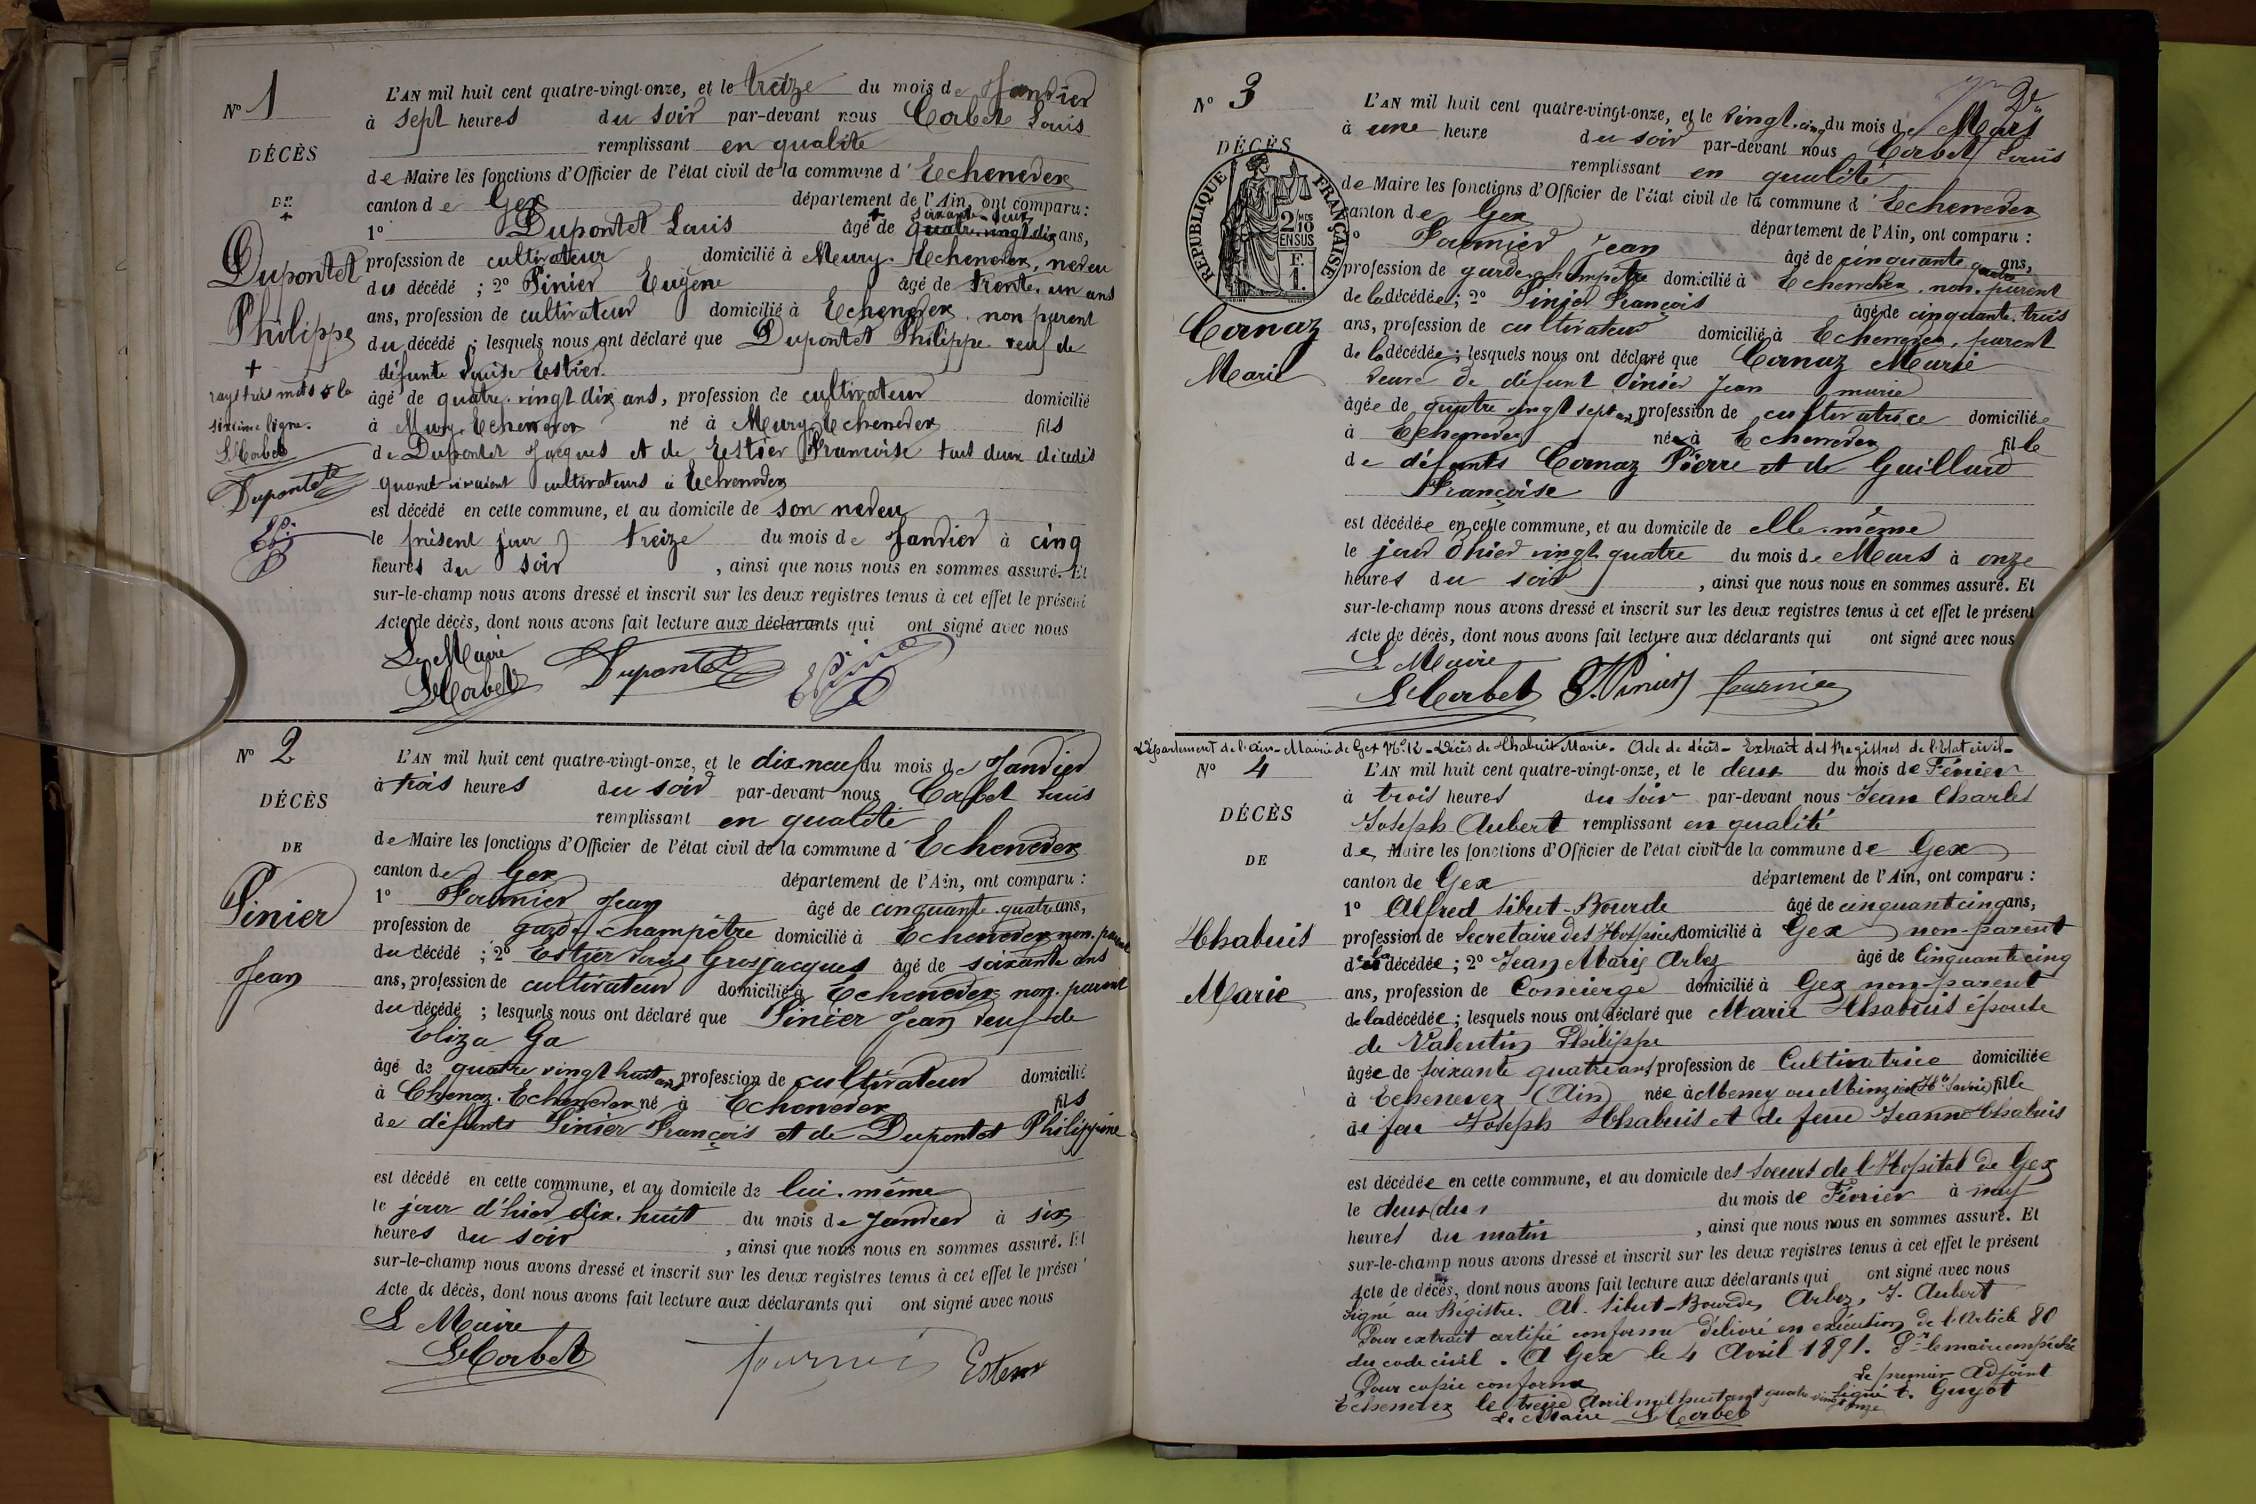 N° 1
DÉCÈS
DE
+
Dupontet
Philippe
+
rayé trois mots à la
sixième ligne.
LCorbet
Dupontet
L'AN mil huit cent quatre-vingt-onze, et le treize du mois de Janvier
à sept heures du soir par-devant nous Corbet Louis
remplissant en qualité
de Maire les fonctions d'Officier de l'état civil de la commune d'Echenevex
canton de Gex département de l'Ain, ont comparu :
soixante-deux
1° Dupontet Louis âgé de + quatre-vingt dix ans,
profession de cultivateur domicilié à Meury. Echenevex, neveu
du décédé ; 2° Pinier Eugène âgé de trente-un ans
ans, profession de cultivateur domicilié à Echenevex. non parent
du décédé ; lesquels nous ont déclaré que Dupontet Philippe veuf de
défunte Louise Estier.
âgé de quatre-vingt dix ans, profession de cultivateur domicilié
à Mury Echenevex né à Meury Echenevex fils
de Dupontet Jacques et de Estier Francoise tous deux décédés
quand vivaient cultivateurs à Echenevex
est décédé en cette commune, et au domicile de son neveu
le présent jour treize du mois de Janvier à cinq
heures du soir , ainsi que nous nous en sommes assuré. Et
sur-le-champ nous avons dressé et inscrit sur les deux registres tenus à cet effet le présent
Acte de décès, dont nous avons fait lecture aux déclarants qui ont signé avec nous
Le Maire
LCorbet Dupontet EPinier
N° 2
DÉCÈS
DE
Pinier
Jean
L'AN mil huit cent quatre-vingt-onze, et le dix-neuf du mois de Janvier
à trois heures du soir par-devant nous Corbet Louis
remplissant en qualité
de Maire les fonctions d'Officier de l'état civil de la commune d'Echenevex
canton de Gex département de l'Ain, ont comparu :
1° Fournier Jean âgé de cinquante-quatre ans,
profession de garde-champêtre domicilié à Echenevex non-parent
du décédé ; 2° Estier Louis Gros Jacques âgé de soixante ans
ans, profession de cultivateur domicilié à Echenevex non-parent
du décédé ; lesquels nous ont déclaré que Pinier Jean veuf de
Eliza Ga
âgé de quatre vingt huit ans profession de cultivateur domicilié
à Chenaz. Echenevex né à Echenevex fils
de défunts Pinier François et de Dupontet Philippine
est décédé en cette commune, et au domicile de lui-même
le jour d'hier dix-huit du mois de Janvier à six
heures du soir , ainsi que nous nous en sommes assuré. Et
sur-le-champ nous avons dressé et inscrit sur les deux registres tenus à cet effet le présen
Acte de décès, dont nous avons fait lecture aux déclarants qui ont signé avec nous
Le Maire
LCorbet fournier Estier
2e
N° 3
DÉCÈS
RÉPUBLIQUE FRANÇAISE
2/10
EN SUS
F.
1.
Cornaz
Marie
L'AN mil huit cent quatre-vingt-onze, et le vingt-cinq du mois de Mars
à une heure du soir par-devant nous Corbet Louis
remplissant en qualité
de Maire les fonctions d'Officier de l'état civil de la commune d'Echenevex
canton de Gex département de l'Ain, ont comparu :
1° Fournier Jean âgé de cinquante quatre ans,
profession de garde champêtre domicilié à Echenevex. non-parent
de la décédée ; 2° Pinier François âgé de cinquante-trois
ans, profession de cultivateur domicilié à Echenevex, parent
de la décédée ; lesquels nous ont déclaré que Cornaz Marie
veuve de défunt Pinier Jean marie
âgée de quatre vingt sept ans profession de cultivatrice domiciliée
à Echenevex née à Echenevex fille
de défunts Cornaz Pierre et de Gaillard
Françoise
est décédée en cette commune, et au domicile de elle-même
le jour d'hier vingt quatre du mois de Mars à onze
heures du soir , ainsi que nous nous en sommes assuré. Et
sur-le-champ nous avons dressé et inscrit sur les deux registres tenus à cet effet le présent
Acte de décès, dont nous avons fait lecture aux déclarants qui ont signé avec nous
Le Maire
LCorbet F. Pinier fournier
Département de l'Ain - Mairie de Gex N° 12 - Décès de Chabuis Marie. Acte de décès - Extrait des Registres de l'Etat civil -
N° 4
DÉCÈS
DE
Chabuis
Marie
L'AN mil huit cent quatre-vingt-onze, et le deux du mois de Février
à trois heures du soir par-devant nous Jean Charles
Joseph Aubert remplissant en qualité
de Maire les fonctions d'Officier de l'état civil de la commune de Gex
canton de Gex département de l'Ain, ont comparu :
1° Alfred Sibut-Bourde âgé de cinquantcinq ans,
profession de Secretaire des Hospices domicilié à Gex non-parent
de la décédée ; 2° Jean Marie Arbez âgé de Cinquante cinq
ans, profession de Concierge domicilié à Gex non-parent
de la décédée ; lesquels nous ont déclaré que Marie Chabuis épouse
de Valentin Philippe
âgée de soixante quatre ans profession de Cultivatrice domiciliée
à Echenevex (Ain) née à Meney ou Minzier (Hte Savoie) fille
de feu Joseph Chabuis et de feue Jeanne Chabuis
est décédée en cette commune, et au domicile des Soeurs de l'Hopital de Gex
le deux du mois de Février à neuf
heures du matin , ainsi que nous nous en sommes assuré. Et
sur-le-champ nous avons dressé et inscrit sur les deux registres tenus à cet effet le présent
Acte de décès, dont nous avons fait lecture aux déclarants qui ont signé avec nous
signé au Régistre. Al. Sibut-Bourde, Arbez, J. Aubert
Pour extrait certifié conforme délivré en exécution de l'Article 80
du code civil. A Gex le 4 Avril 1891. Pr le maire empêché
Le premier Adjoint
Pour copie conforme signé t. Guyot
Echenevex le treize Avril mil huit cent quatre vingt onze
Le Maire LCorbet